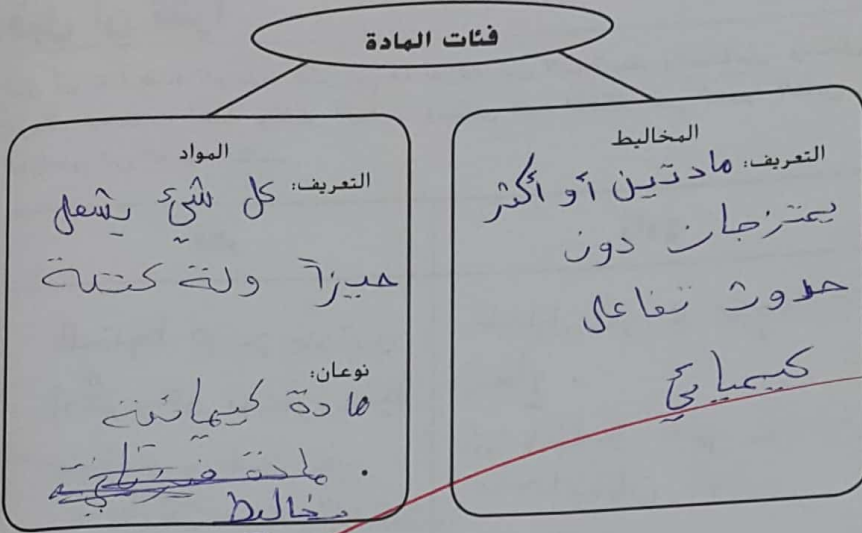 فئات المادة
المخاليط
التعريف: مادتين أو أكثر
يمتزجان دون
حدوث تفاعل
كيميائي
المواد
التعريف: كل شيء يشغل
حيزاً وله كتلة
نوعان:
مادة كيميائية
. مادة
مخاليط